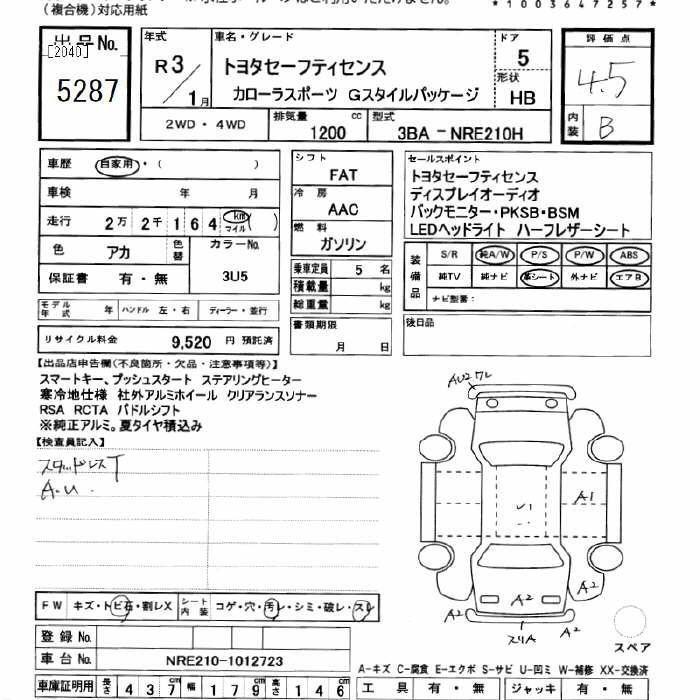 (複合機)対応用紙
*1003647257*
出品No.
[2040]
5287
年式
R3/1月
車名・グレード
トヨタセーフティセンス
カローラスポーツ Gスタイルパッケージ
ドア
5
形状
HB
評価点
4.5
内装
B
2WD・4WD
排気量
1200 cc
型式
3BA－NRE210H
車歴 自家用・( )
車検 年 月
走行 2万2千164 km マイル ( )
色 アカ
色替
カラーNo.
3U5
保証書 有・無
シフト
FAT
冷房
AAC
燃料
ガソリン
乗車定員 5 名
積載量 kg
総重量 kg
セールスポイント
トヨタセーフティセンス
ディスプレイオーディオ
バックモニター・PKSB・BSM
LEDヘッドライト ハーフレザーシート
装備品
S/R 純A/W P/S P/W ABS
純TV 純ナビ 革シート 外ナビ エアB
ナビ型番:
モデル年式 年 ハンドル 左・右 ディーラー・並行
リサイクル料金 9,520 円 預託済
書類期限
月 日
後日品
【出品店申告欄(不良箇所・欠品・注意事項等)】
スマートキー、プッシュスタート ステアリングヒーター
寒冷地仕様 社外アルミホイール クリアランスソナー
RSA RCTA パドルシフト
※純正アルミ。夏タイヤ積込み
【検査員記入】
スタッドレスT
A.U.
AU2ワレ
A1
A2
A2
A2
A2
A2
スリA
スペア
FW キズ・トビ石・割レX
シート内装 コゲ・穴・汚レ・シミ・破レ・スレ
登録No.
車台No. NRE210-1012723
A-キズ C-腐食 E-エクボ S-サビ U-凹ミ W-補修 XX-交換済
車庫証明用 長さ 437cm 幅 179cm 高さ 146cm
工具 有・無 ジャッキ 有・無